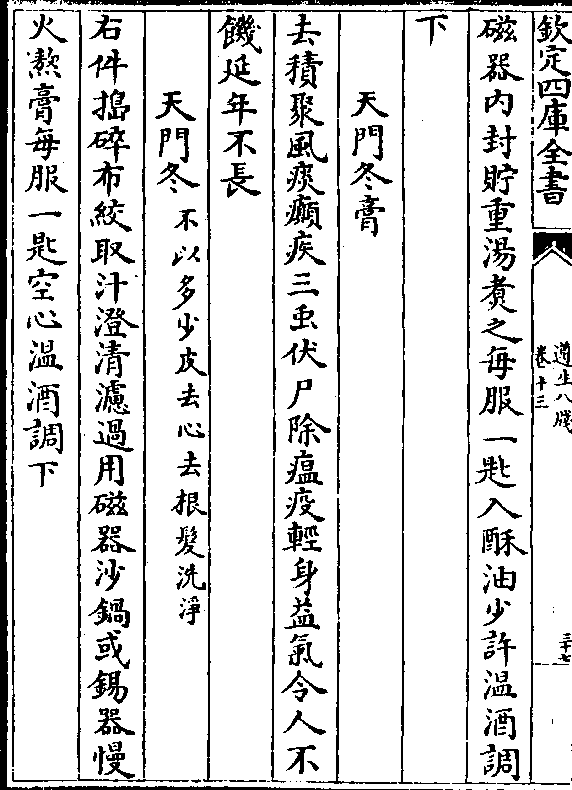 欽定四庫全書
遵生八牋
卷十三
三十七
磁器內封貯重湯煮之每服一匙入酥油少許溫酒調
下
天門冬膏
去積聚風痰癲疾三蟲伏尸除瘟疫輕身益氣令人不
饑延年不長
天門冬不以多少皮去心去根髮洗淨
右件搗碎布絞取汁澄清濾過用磁器沙鍋或錫器慢
火熬膏每服一匙空心溫酒調下